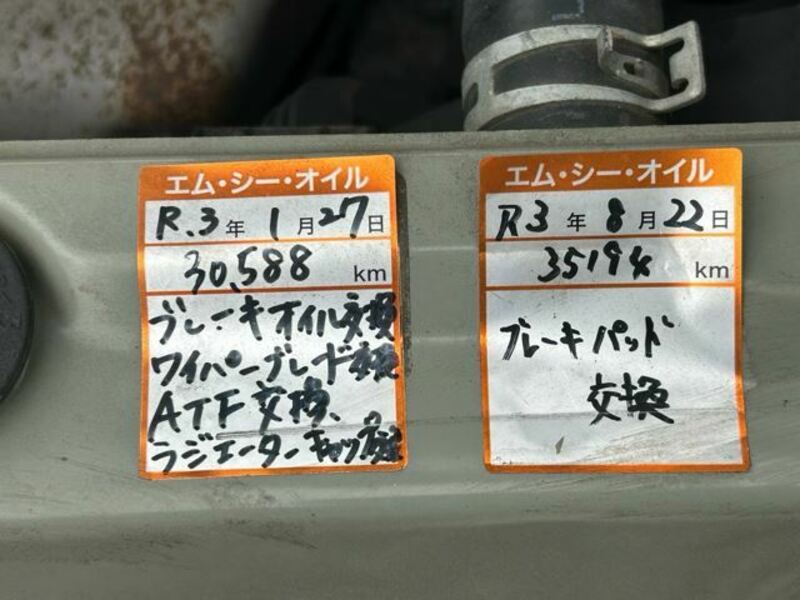 エム・シー・オイル
R.3年 1月27日
30,588 km
ブレーキオイル交換
ワイパーブレード交換
ATF交換、
ラジエーターキャップ交換
エム・シー・オイル
R3年 8月22日
35194 km
ブレーキパッド
交換